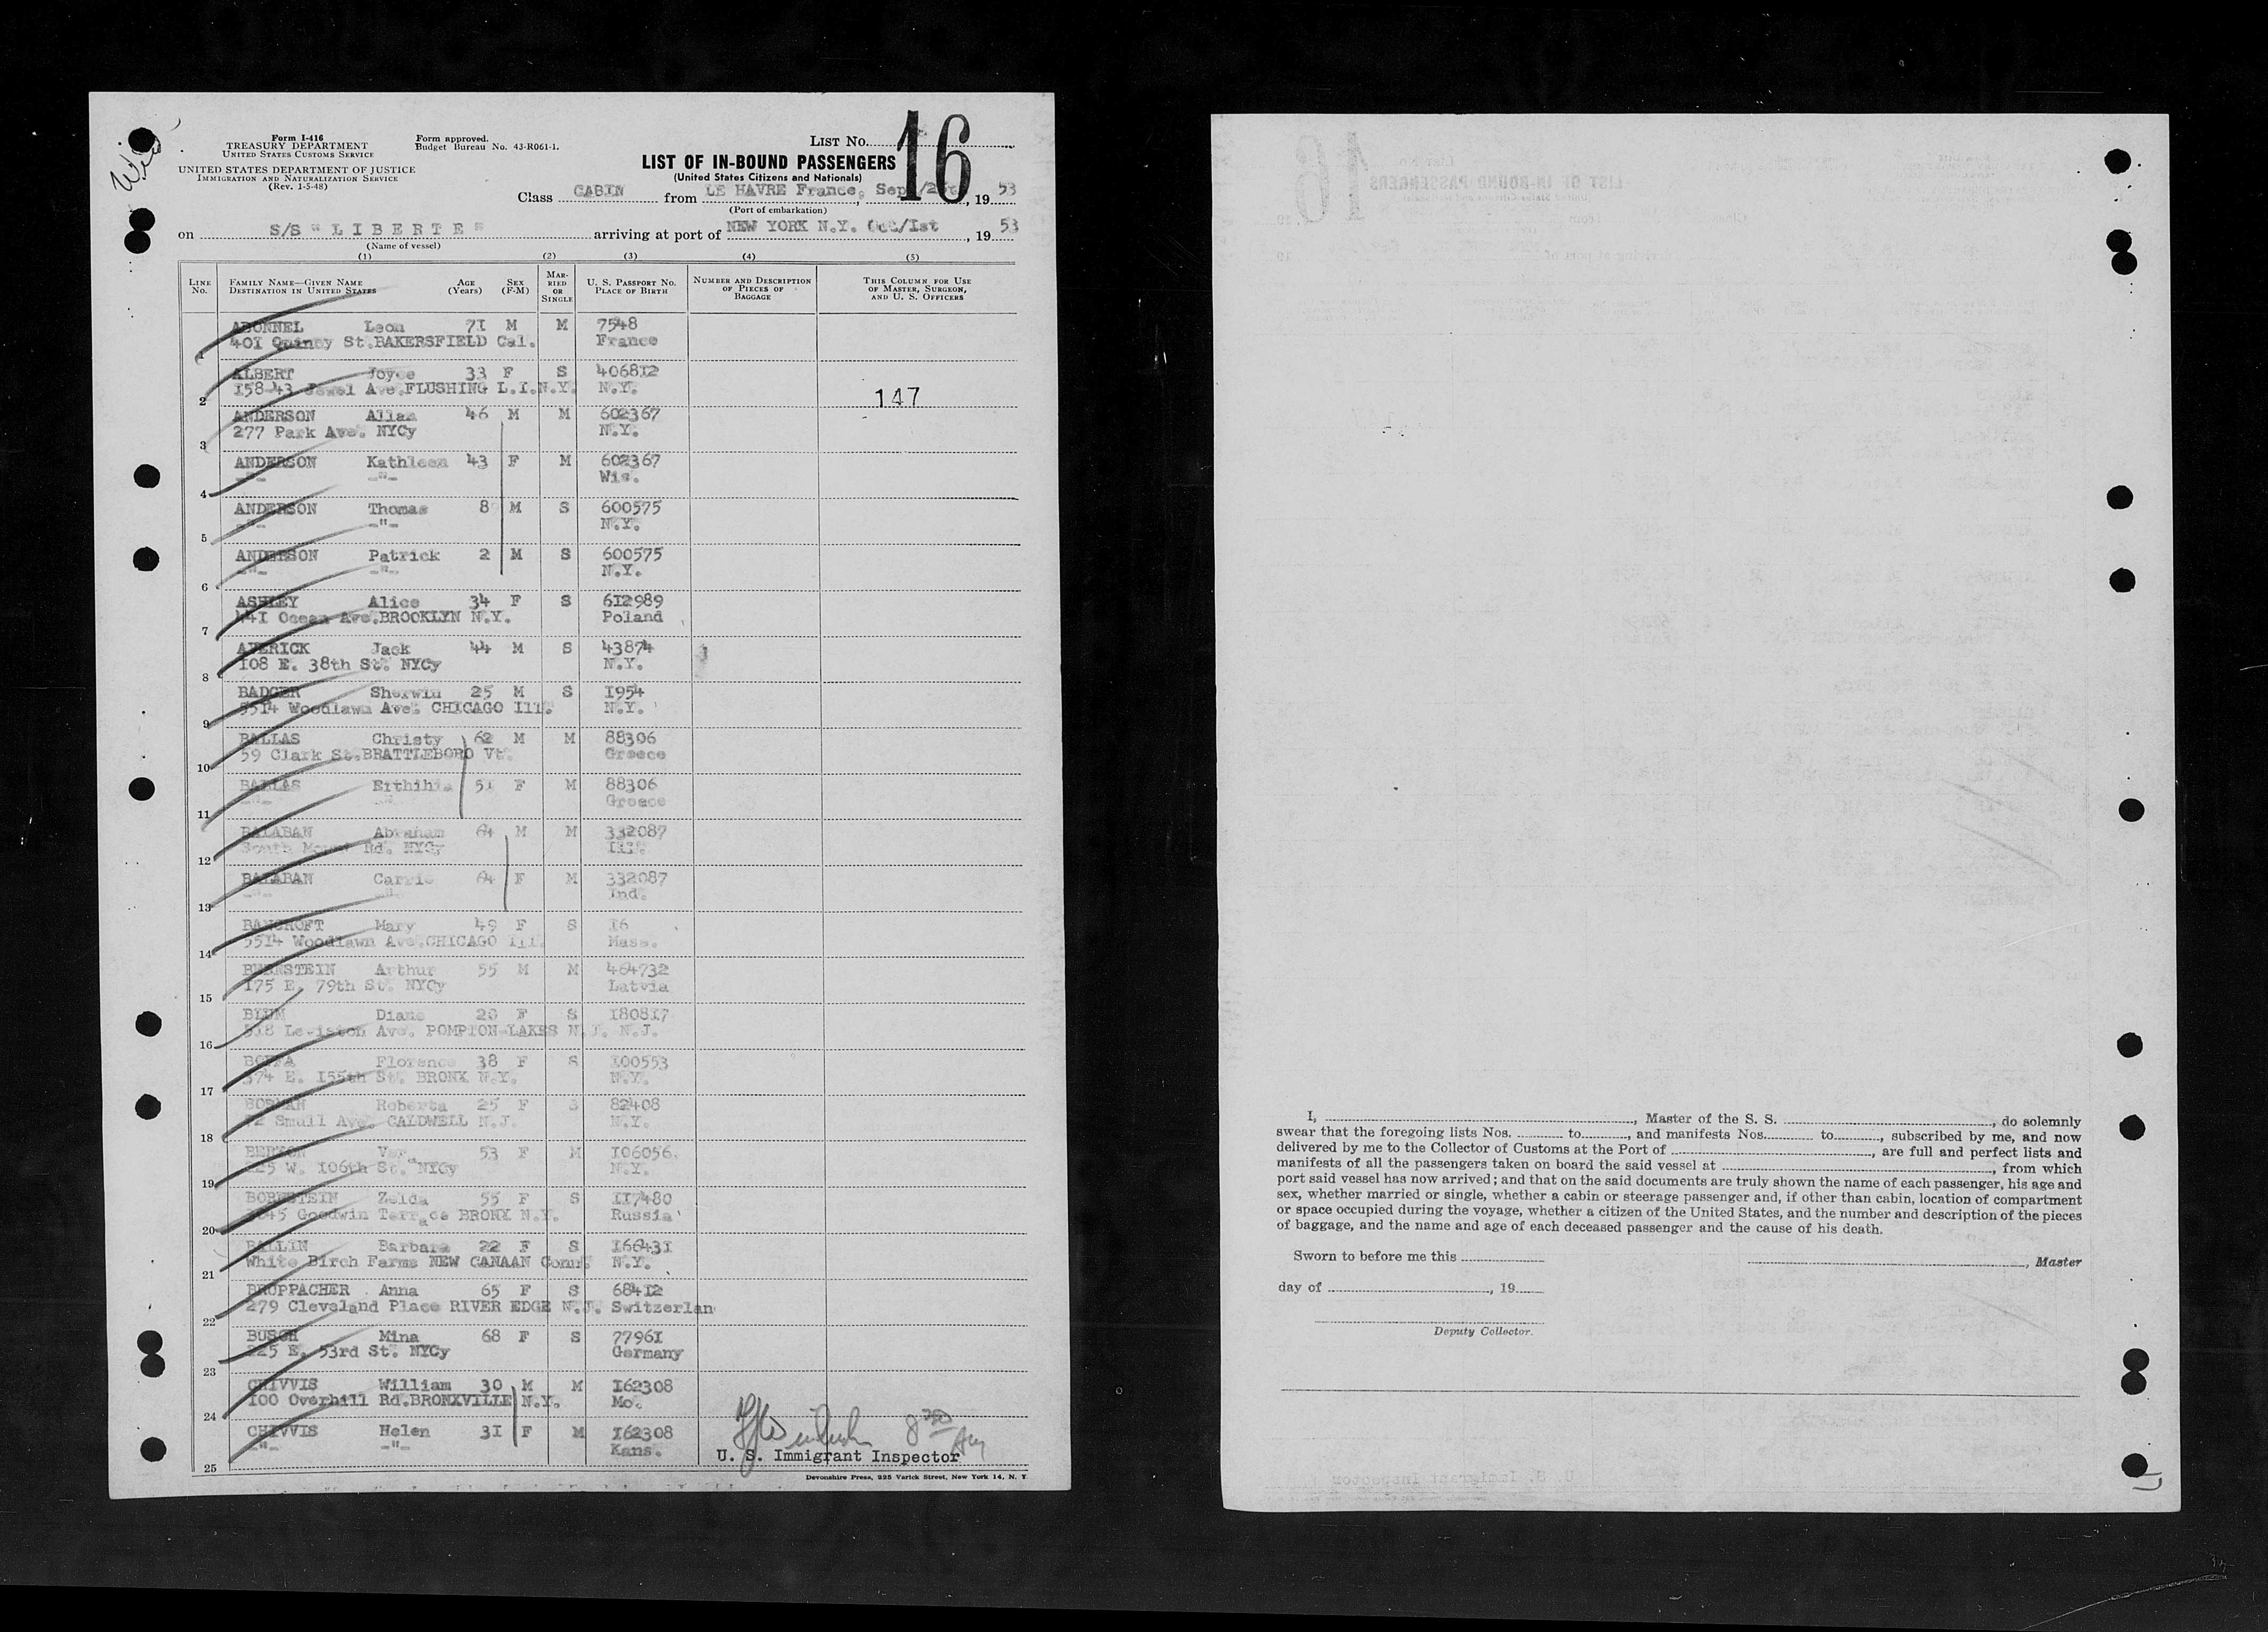 Form I-416
TREASURY DEPARTMENT
UNITED STATES CUSTOMS SERVICE
UNITED STATES DEPARTMENT OF JUSTICE
IMMIGRATION AND NATURALIZATION SERVICE
(Rev. 1-5-48)
Form approved.
Budget Bureau No. 43-R061-1.
LIST No. 16
LIST OF IN-BOUND PASSENGERS
(United States Citizens and Nationals)
Class CABIN from LE HAVRE France, , 19 53
(Port of embarkation)
on S/S " L I B E R T E " arriving at port of NEW YORK N.Y. Oct/Ist , 19 53
(Name of vessel)
(1) (2) (3) (4) (5)
LINE No. FAMILY NAME—GIVEN NAME DESTINATION IN UNITED STATES AGE (Years) SEX (F-M) MARRIED OR SINGLE U. S. PASSPORT NO. PLACE OF BIRTH NUMBER AND DESCRIPTION OF PIECES OF BAGGAGE THIS COLUMN FOR USE OF MASTER, SURGEON, AND U. S. OFFICERS
ABONNEL Leon 7I M M 7548
1 40I Quincy St.BAKERSFIELD Cal. France
ALBERT Joyce 33 F S 4068I2
2 I58-43 Jewel Ave.FLUSHING L.I.N.Y. N.Y. 147
ANDERSON Allan 46 M M 602367
3 277 Park Ave. NYCy N.Y.
ANDERSON Kathleen 43 F M 602367
4 -"- -"- Wis.
ANDERSON Thomas 8 M S 600575
5 -"- -"- N.Y.
ANDERSON Patrick 2 M S 600575
6 -"- -"- N.Y.
ASHLEY Alice 34 F S 6I2989
7 44I Ocean Ave.BROOKLYN N.Y. Poland
AVERICK Jack 44 M S 43874
8 I08 E. 38th St. NYCy N.Y.
BADGER Sherwin 25 M S I954
9 55I4 Woodlawn Ave. CHICAGO Ill. N.Y.
BALLAS Christy 62 M M 88306
10 59 Clark St.BRATTLEBORO Vt. Greece
BALLAS 5I F M 88306
11 -"- Greece
BALABAN Abraham 64 M M 332087
12 South Rd. NYCy Ill.
BALABAN Carrie 64 F M 332087
13 -"- -"- Ind.
BANCROFT Mary 49 F S I6
14 55I4 Woodlawn Ave.CHICAGO Ill. Mass.
BERNSTEIN Arthur 55 M M 464732
15 I75 E. 79th St. NYCy Latvia
BLUM Diane 20 F S I808I7
16 Ave. POMPTON LAKES N.J. N.J.
Florence 38 F S I00553
17 374 E. I55th St. BRONX N.Y. N.Y.
Roberta 25 F S 82408
18 Small Ave. CALDWELL N.J. N.Y.
Vera 53 F M I06056.
19 225 W. I06th St. NYCy N.Y.
BORNSTEIN Zelda 55 F S II7480
20 Goodwin Terrace BRONX N.Y. Russia
BALLIN Barbara 22 F S I6643I
21 White Birch Farms NEW CANAAN Conn. N.Y.
BROPPACHER Anna 65 F S 684I2
22 279 Cleveland Place RIVER EDGE N.J. Switzerlan
BUSCH Mina 68 F S 7796I
23 225 E. 53rd St. NYCy Germany
CHIVVIS William 30 M M I62308
24 I00 Overhill Rd.BRONXVILLE N.Y. Mo.
CHIVVIS Helen 3I F M I62308
25 -"- -"- Kans.
U. S. Immigrant Inspector
Devonshire Press, 225 Varick Street, New York 14, N. Y.
I, , Master of the S. S. , do solemnly
swear that the foregoing lists Nos. to , and manifests Nos. to , subscribed by me, and now
delivered by me to the Collector of Customs at the Port of , are full and perfect lists and
manifests of all the passengers taken on board the said vessel at , from which
port said vessel has now arrived; and that on the said documents are truly shown the name of each passenger, his age and
sex, whether married or single, whether a cabin or steerage passenger and, if other than cabin, location of compartment
or space occupied during the voyage, whether a citizen of the United States, and the number and description of the pieces
of baggage, and the name and age of each deceased passenger and the cause of his death.
Sworn to before me this
, Master
day of , 19
Deputy Collector.